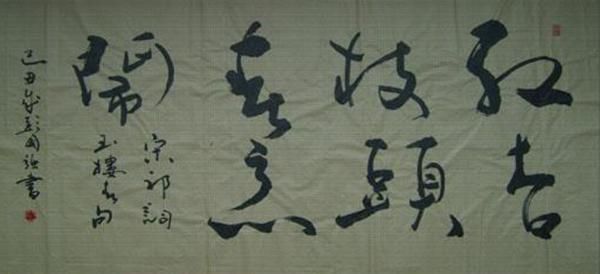 红杏
枝頭
春意
鬧
宋祁詞
玉樓春句
己丑歲書